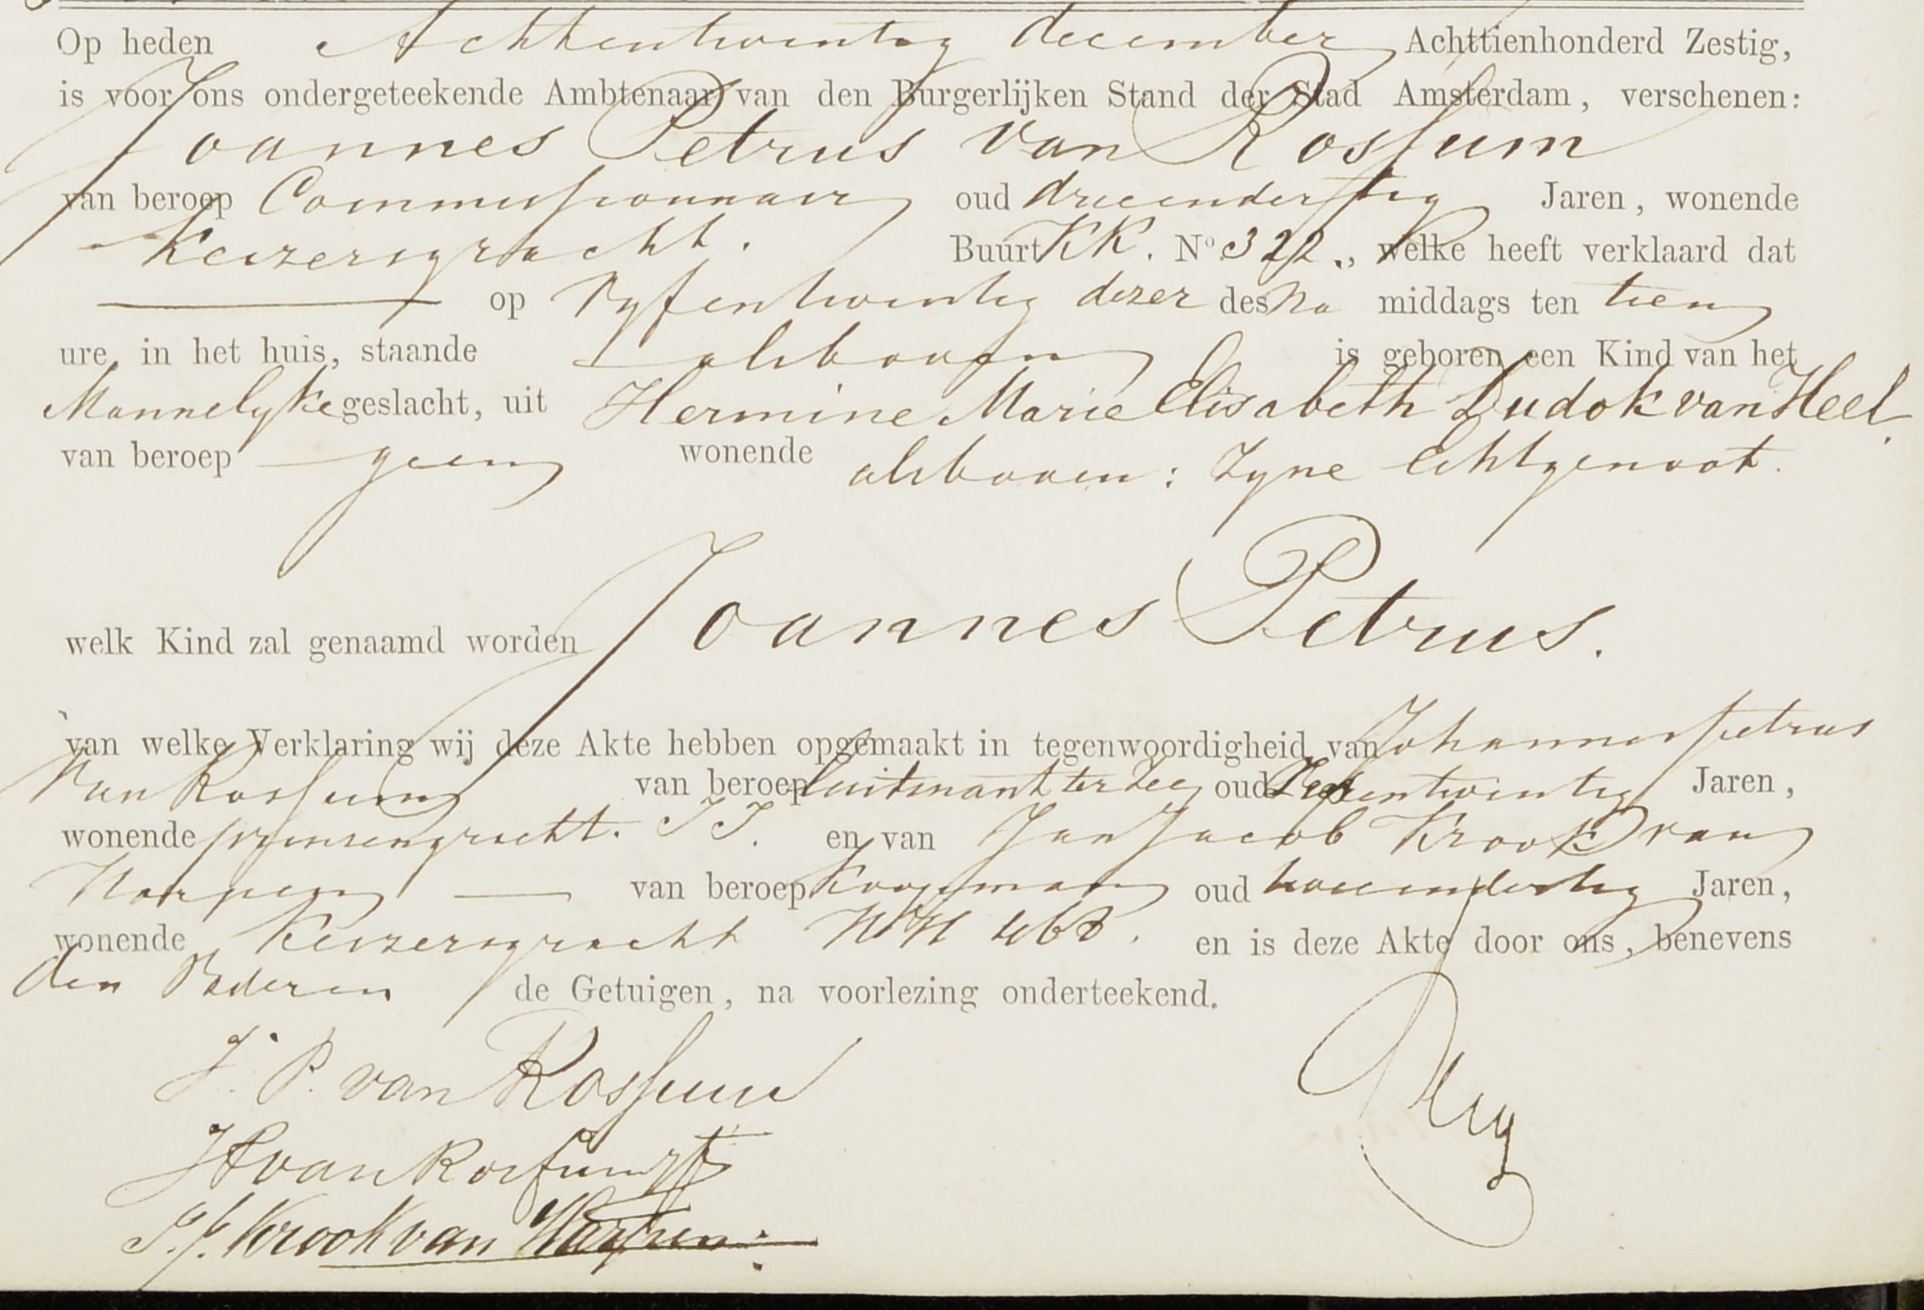 Op heden Achttentwintig december Achttienhonderd Zestig,
is voor ons ondergeteekende Ambtenaar van den Burgerlijken Stand der Stad Amsterdam, verschenen:
Joannes Petrus van Rossum
van beroep Commissionnair oud drieendertig Jaren, wonende
Keizersgracht. Buurt KK. No 322., welke heeft verklaard dat
op Vyfentwintig dezer des Na middags ten tien
ure, in het huis, staande alsboven is geboren een Kind van het
Mannelyke geslacht, uit Hermine Marie Elisabeth Dudok van Heel.
van beroep geen wonende alsboven: Zyne Echtgenoot.
Joannes Petrus.
welk Kind zal genaamd worden
van welke Verklaring wij deze Akte hebben opgemaakt in tegenwoordigheid van Johannes Petrus
Van Rossum van beroep Luitenant ter Zee oud Zesentwintig Jaren,
wonende prinsengracht. JJ. en van Jan Jacob Krook van
Harpen van beroep Koopman oud tweeendertig Jaren,
wonende Keizersgracht HH 468. en is deze Akte door ons, benevens
den Vader en de Getuigen, na voorlezing onderteekend.
J. P. van Rossum
JP van Rossum
J. J. Krook van Harpen.